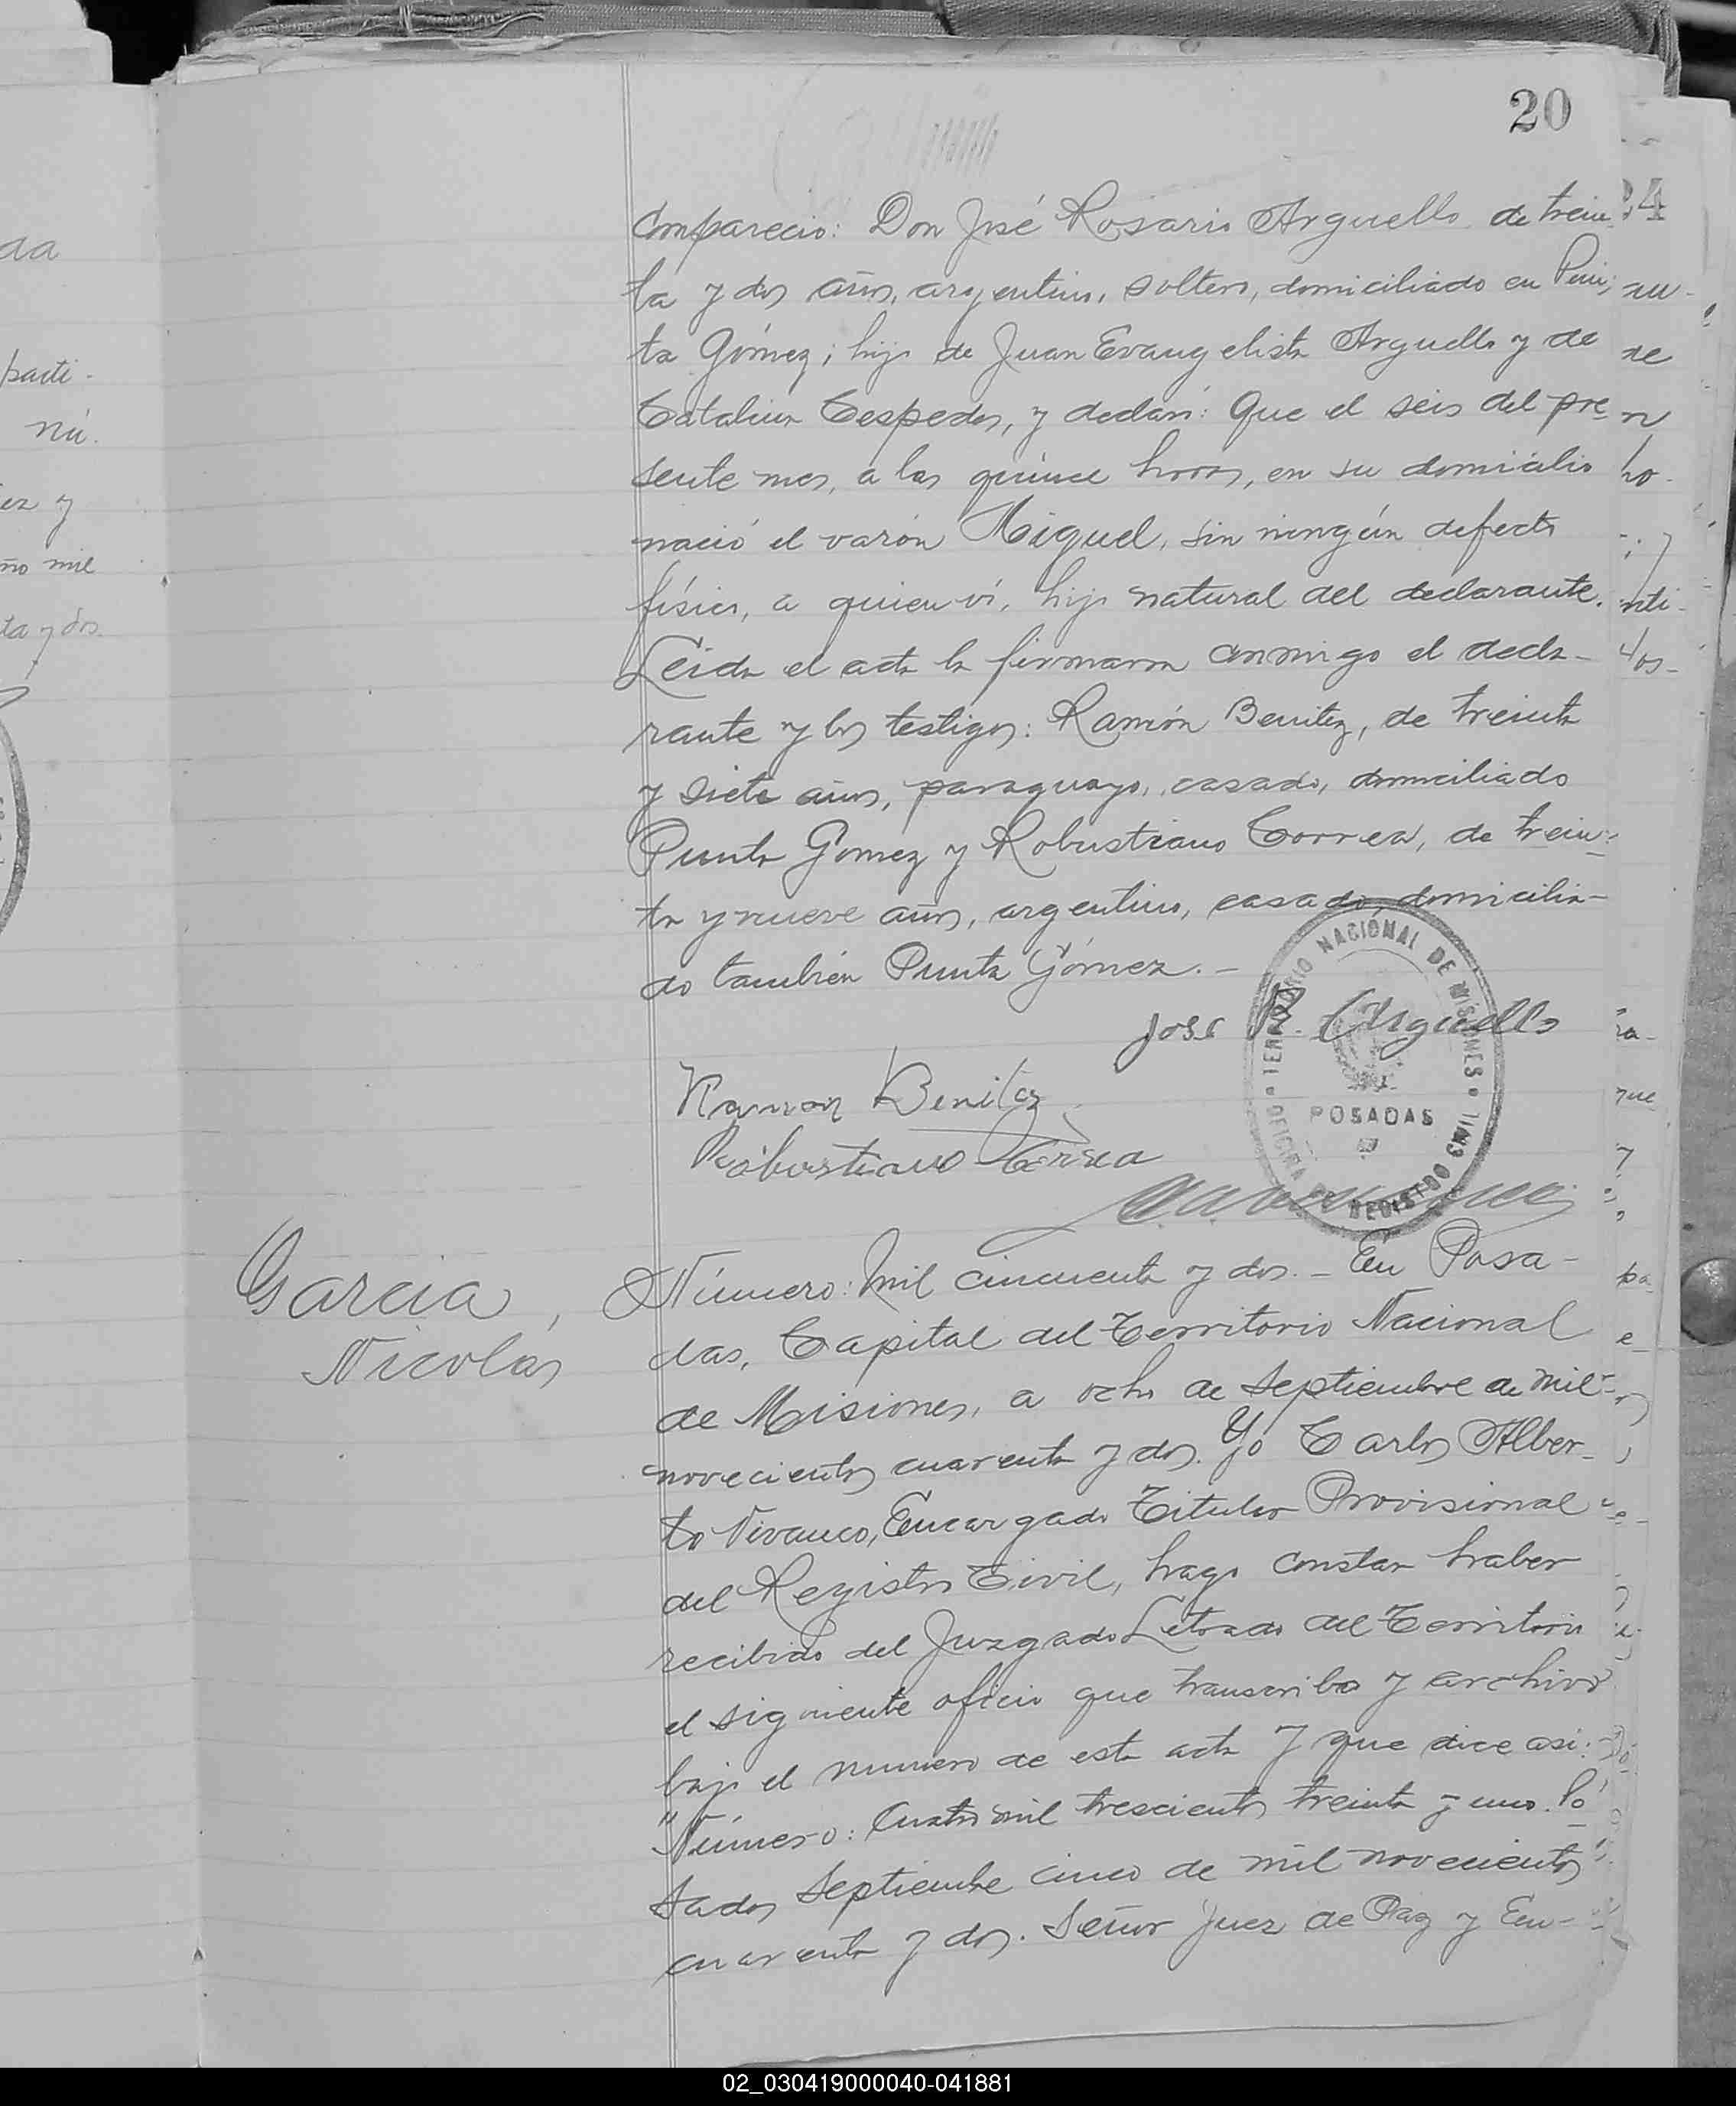 20
Compareció: Don José Rosario Arguello de trein
ta y dos años, argentino, soltero, domiciliado en Pun,
ta Gómez; hijo de Juan Evangelista Arguello y de
Catalina Cespedes, y declaró: Que el seis del pre
sente mes, a las quince horas, en su domicilio
nació el varón Miguel, sin ningún defecto
físico, a quien vi, hijo natural del declarante.
Leida el acta la firmaron conmigo el decla-
rante y los testigos: Ramón Benitez, de treinta
y siete años, paraguayo, casado, domiciliado
Punta Gomez y Robustiano Correa, de trein-
ta y nueve años, argentino, casado, domicilia-
do también Punta Gómez.-
Jose R. Arguello
Ramon Benitez
Robustiano Correa
TERRITORIO NACIONAL DE MISIONES
POSADAS
OFICINA DE REGISTRO CIVIL
Garcia,
Nicolás
Número: Mil cincuenta y dos.- En Posa-
das, Capital del Territorio Nacional
de Misiones, a ocho de Septiembre de mil
novecientos cuarenta y dos. Yo Carlos Alber-
to Vivanco, Encargado Titular Provisional
del Registro Civil, hago constar haber
recibido del Juzgado Letrado del Territorio
el siguiente oficio que transcribo y archivo
bajo el numero de esta acta y que dice asi:
"Número: Cuatro mil trescientos treinta y uno. Po
sadas Septiembre cinco de mil novecientos
cuarenta y dos. Señor Juez de Paz y En-
da
parti-
nú.
ez y
ño mil
ta y dos.
24
02_030419000040-041881